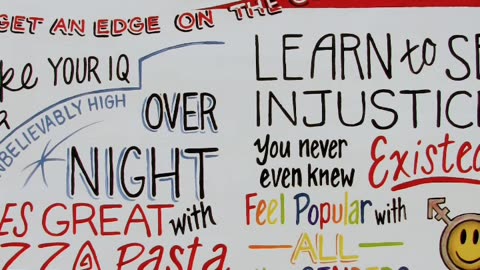 GET AN EDGE ON THE
YOUR IQ
UNBELIEVABLY HIGH
OVER
NIGHT
GREAT with
Pasta
LEARN to SE
INJUSTIC
You never
even knew
Existed
Feel Popular with
ALL